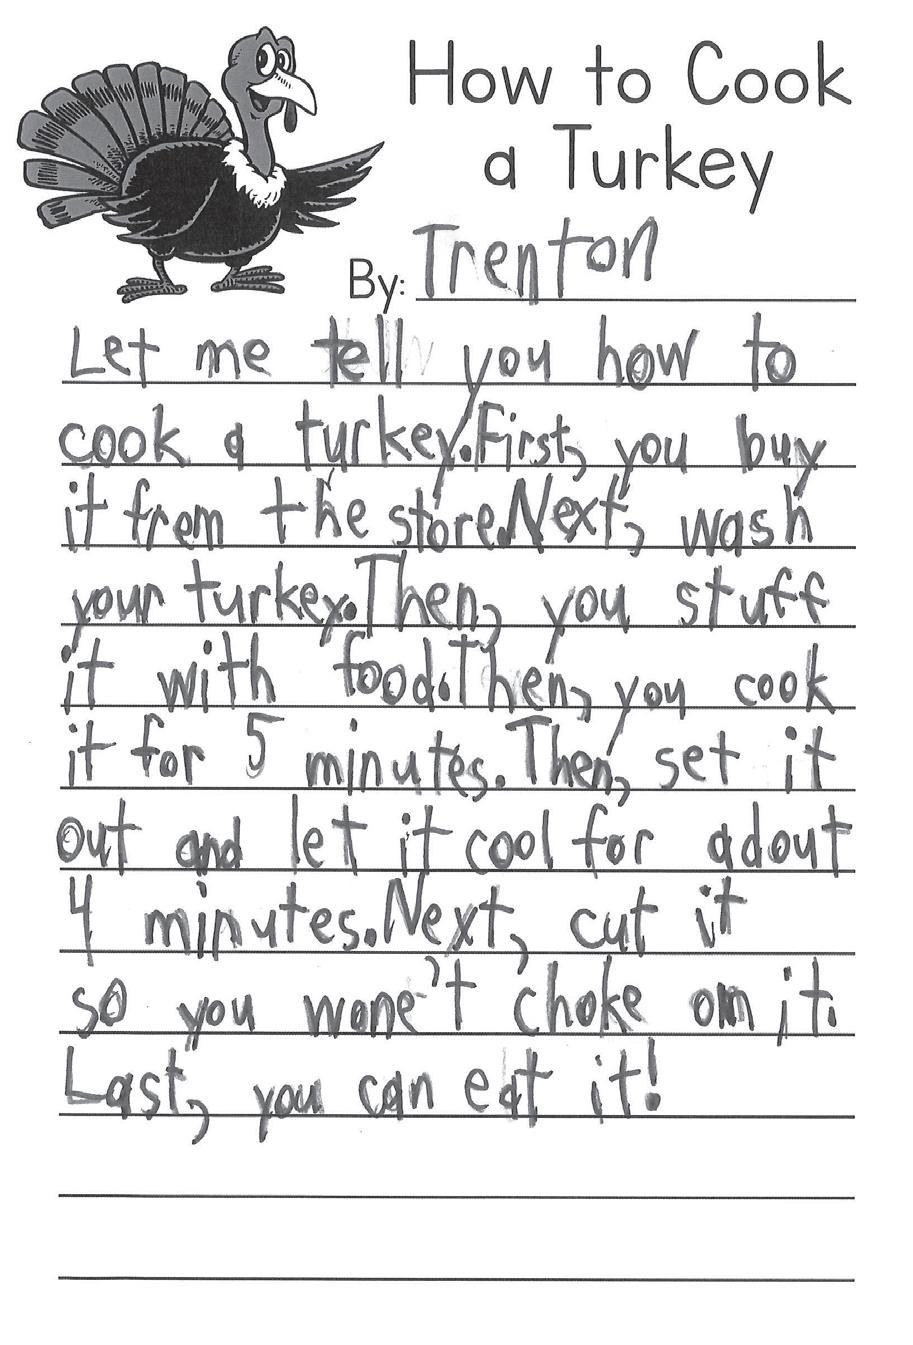 How to Cook
a Turkey
By: Trenton
Let me tell you how to
cook a turkey. First, you buy
it from the store. Next, wash
your turkey. Then, you stuff
it with food. Then, you cook
it for 5 minutes. Then, set it
out and let it cool for adout
4 minutes. Next, cut it
so you wone't choke om it.
Last, you can eat it!